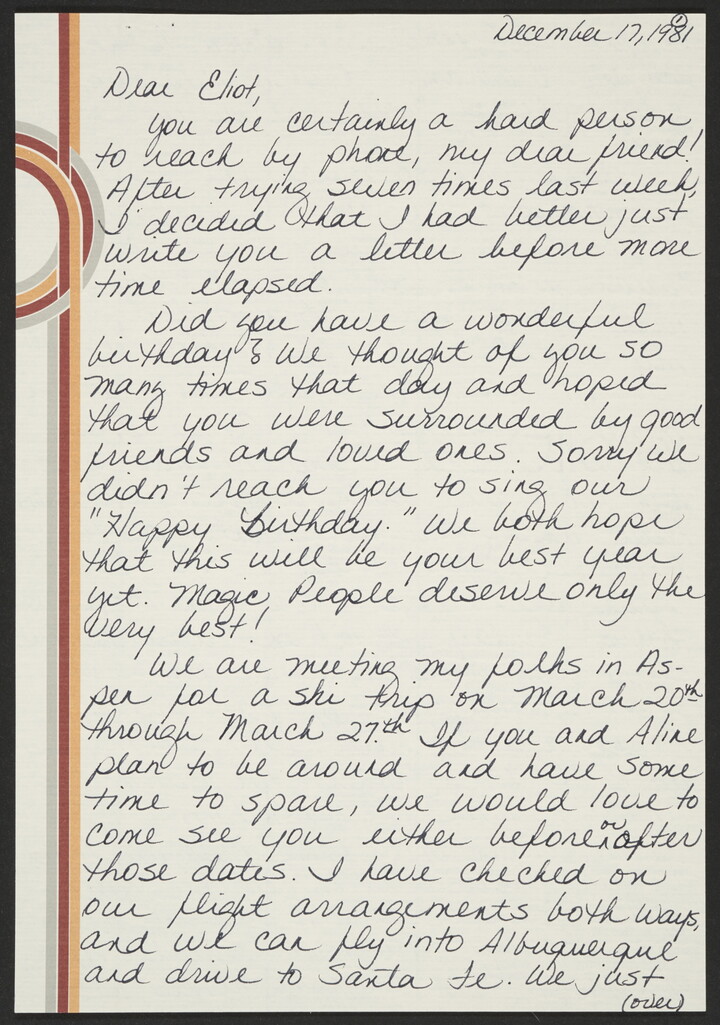 December 17, 1981
①
Dear Eliot,
You are certainly a hard person
to reach by phone, my dear friend!
After trying seven times last week,
I decided that I had better just
write you a letter before more
time elapsed.
Did you have a wonderful
birthday? We thought of you so
many times that day and hoped
that you were surrounded by good
friends and loved ones. Sorry we
didn't reach you to sing our
"Happy Birthday." We both hope
that this will be your best year
yet. Magic People deserve only the
very best!
We are meeting my folks in As-
pen for a ski trip on March 20th
through March 27th. If you and Aline
plan to be around and have some
time to spare, we would love to
come see you either before or after
those dates. I have checked on
our flight arrangements both ways,
and we can fly into Albuquerque
and drive to Santa Fe. We just
(over)